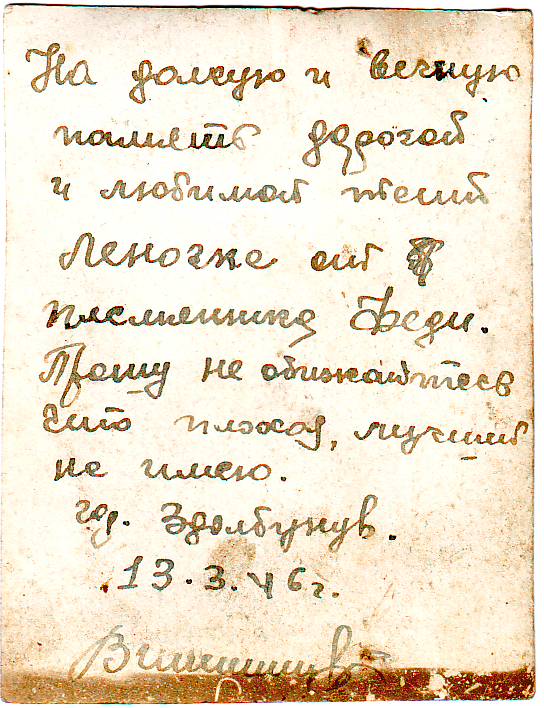 На долгую и вечную
память дорогой
и любимой
Леночке от
племянника Феди.
Прошу не обижайтесь
что плохая, лучший
не имею.
гор. Здолбунув.
13.3.46г.